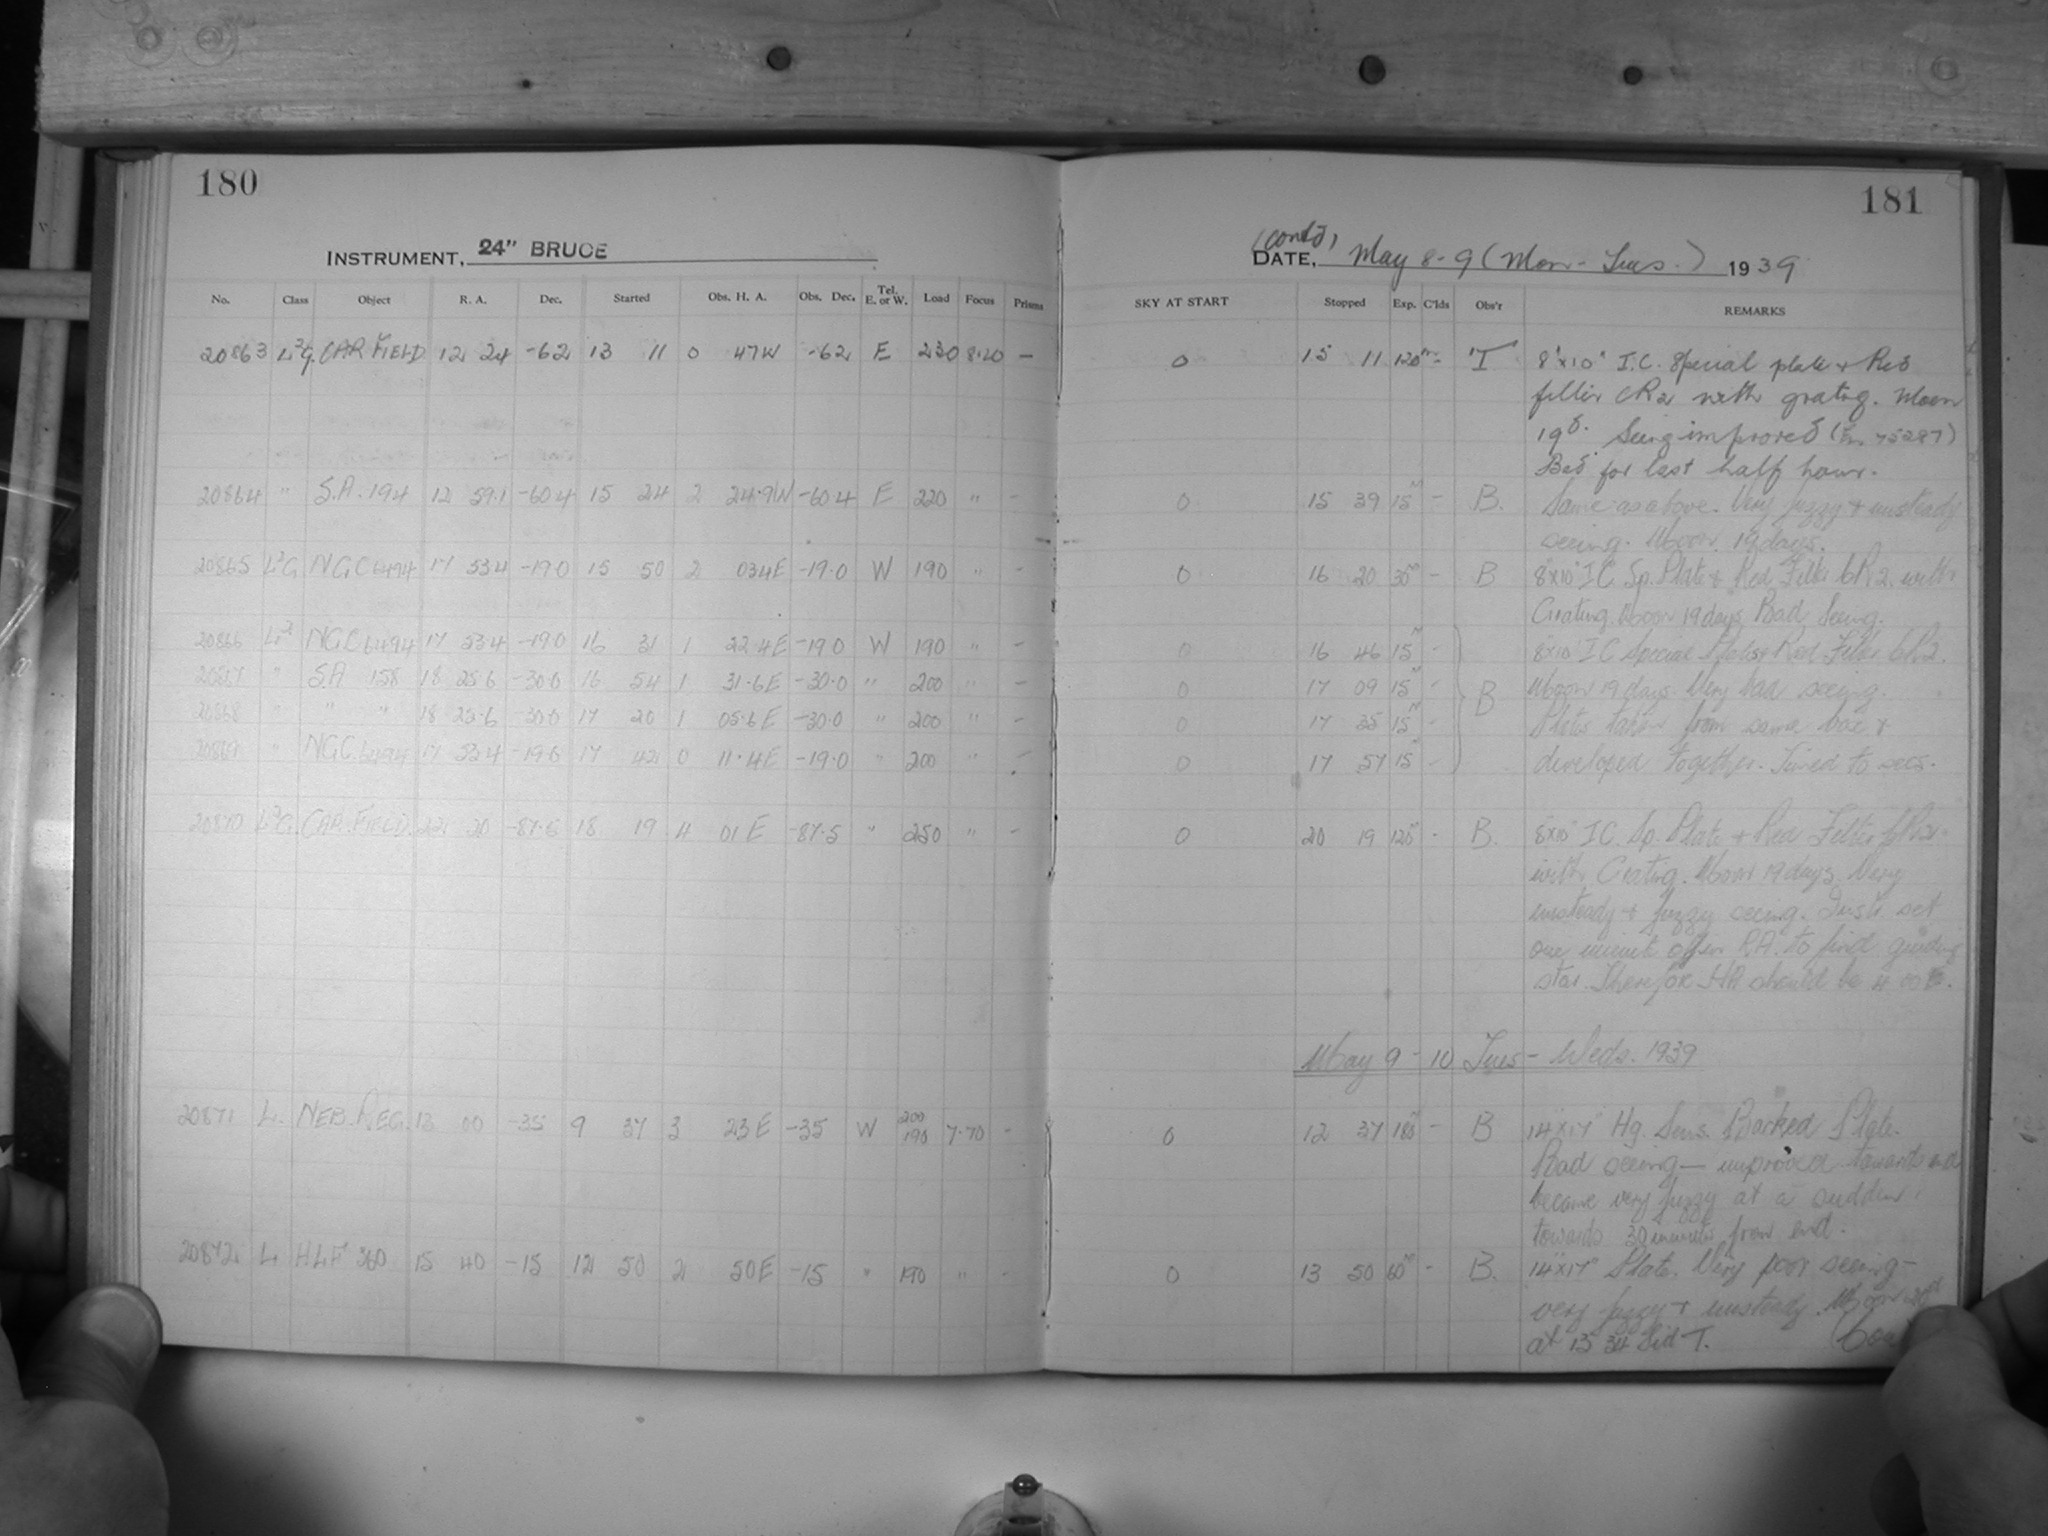 180
INSTRUMENT, 24" BRUCE
No. Class Object R. A. Dec. Started Obs. H. A. Obs. Dec. Tel. E. or W. Load Focus Prisms
20863 L²G. CAR FIELD 12 24 -62 13 11 0 47W -62 E 230 8.20 -
20864 " S.A. 194 12 59.1 -60.4 15 24 2 24.9W -60.4 E 220 " -
20865 L²G NGC 6494 17 53.4 -19.0 15 50 2 03.4E -19.0 W 190 " -
20866 L² NGC 6494 17 53.4 -19.0 16 31 1 22.4E -19.0 W 190 " -
20867 " S.A 158 18 25.6 -30.0 16 54 1 31.6E -30.0 " 200 " -
20868 " " " 18 25.6 -30.0 17 20 1 05.6E -30.0 " 200 " -
20869 " NGC 6494 17 53.4 -19.0 17 42 0 11.4E -19.0 " 200 " -
20870 L²G. CAR. FIELD 22 20 -87.5 18 19 4 01E -87.5 " 250 " -
20871 L. NEB. REG. 13 00 -35 9 37 3 23E -35 W 200 190 7.70 -
20872 L HLF 360 15 40 -15 12 50 2 50E -15 " 190 " -
181
(contd)
DATE, May 8-9 (Mon-Tues.) 1939
SKY AT START Stopped Exp. C'lds Obs'r REMARKS
0 15 11 120m - T 8"x10" I.C. Special plate + Red
filter CR2 with gratg. Moon
19d. Seeing improved
Bad for last half hour.
0 15 39 15m - B. Same as above. Very fuzzy + unsteady
seeing. Moon 19 days.
0 16 20 30m - B 8"x10" I.C. Sp. Plate + Red Filter CR2 with
Grating. Moon 19 days. Bad Seeing.
0 16 46 15m - 8x10" I C Special Plates + Red Filter CR2.
0 17 09 15m - B Moon 19 days. Very bad seeing.
0 17 35 15m - Plates taken from same box +
0 17 57 15m - developed together. Timed to secs.
0 20 19 120m - B. 8"x10" I.C. Sp. Plate + Red Filter CR2
with Grating. Moon 19 days. Very
unsteady + fuzzy seeing. Inst. set
one minute off in R.A. to find guiding
star. Therefore HA should be 4 00E.
May 9 - 10 Tues - Weds. 1939
0 12 37 180m - B 14"x17" Hg. Sens. Backed Plate.
Bad seeing - improved towards end
became very fuzzy at a sudden
towards 30 minutes from end.
0 13 50 60m - B. 14"x17" Plate. Very poor seeing -
very fuzzy + unsteady. Moon
at 13 34 Sid T.